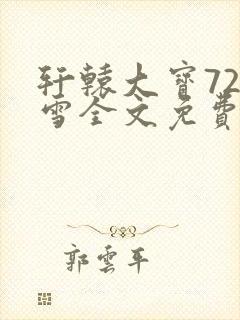 轩辕大寶72
雪全文免費
郭雲平